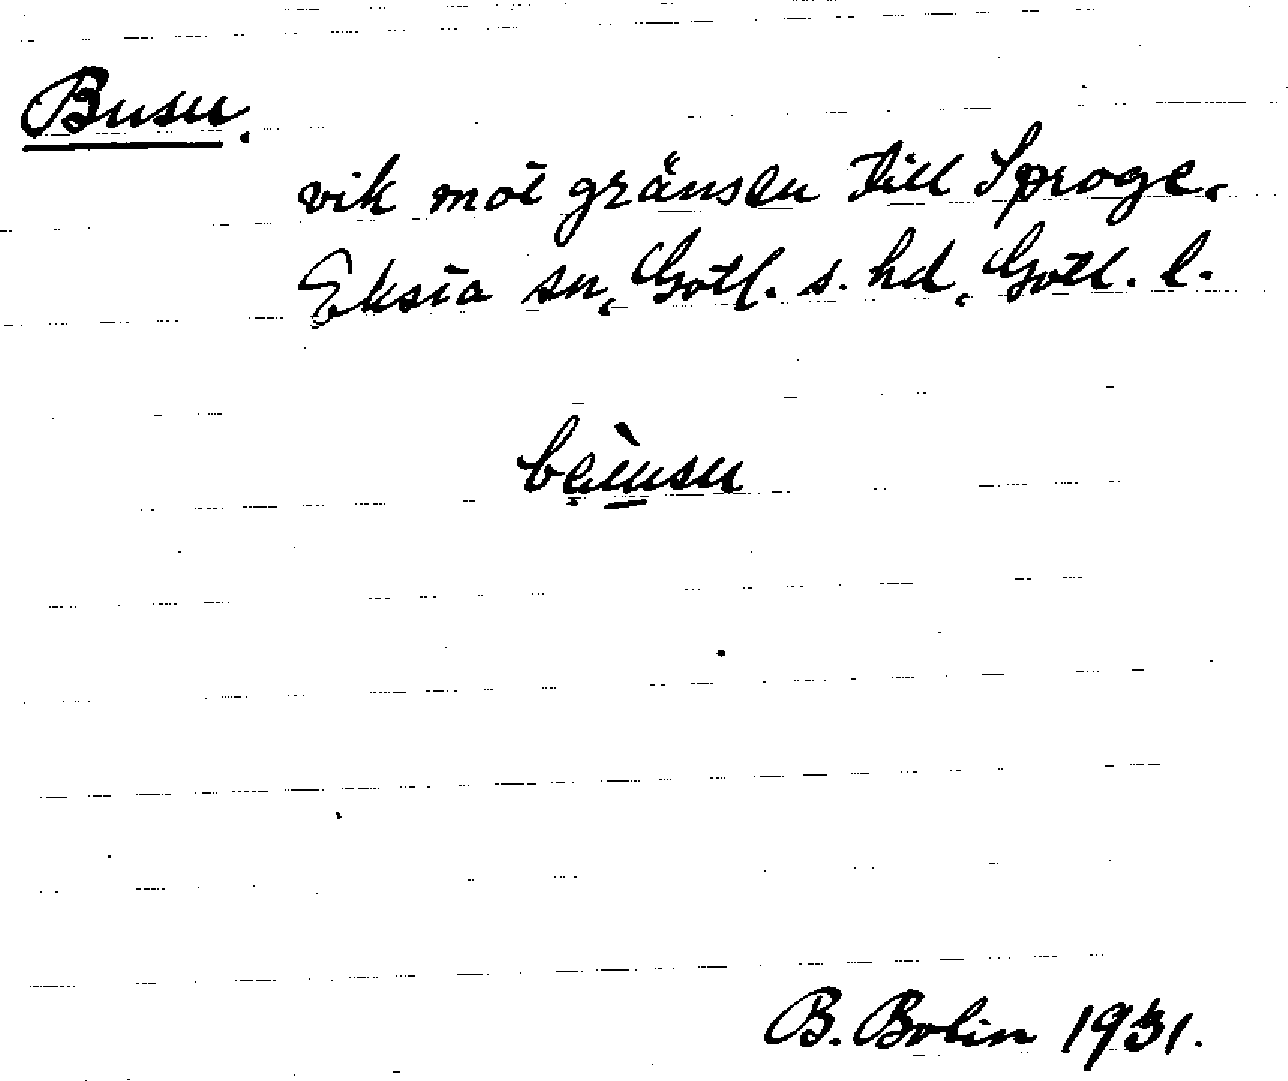 Busu.
vik mot gränsen till Sproge.
Eksta sn, Gotl. s. hd, Gotl. l.
beùsu
B. Bolin 1931.